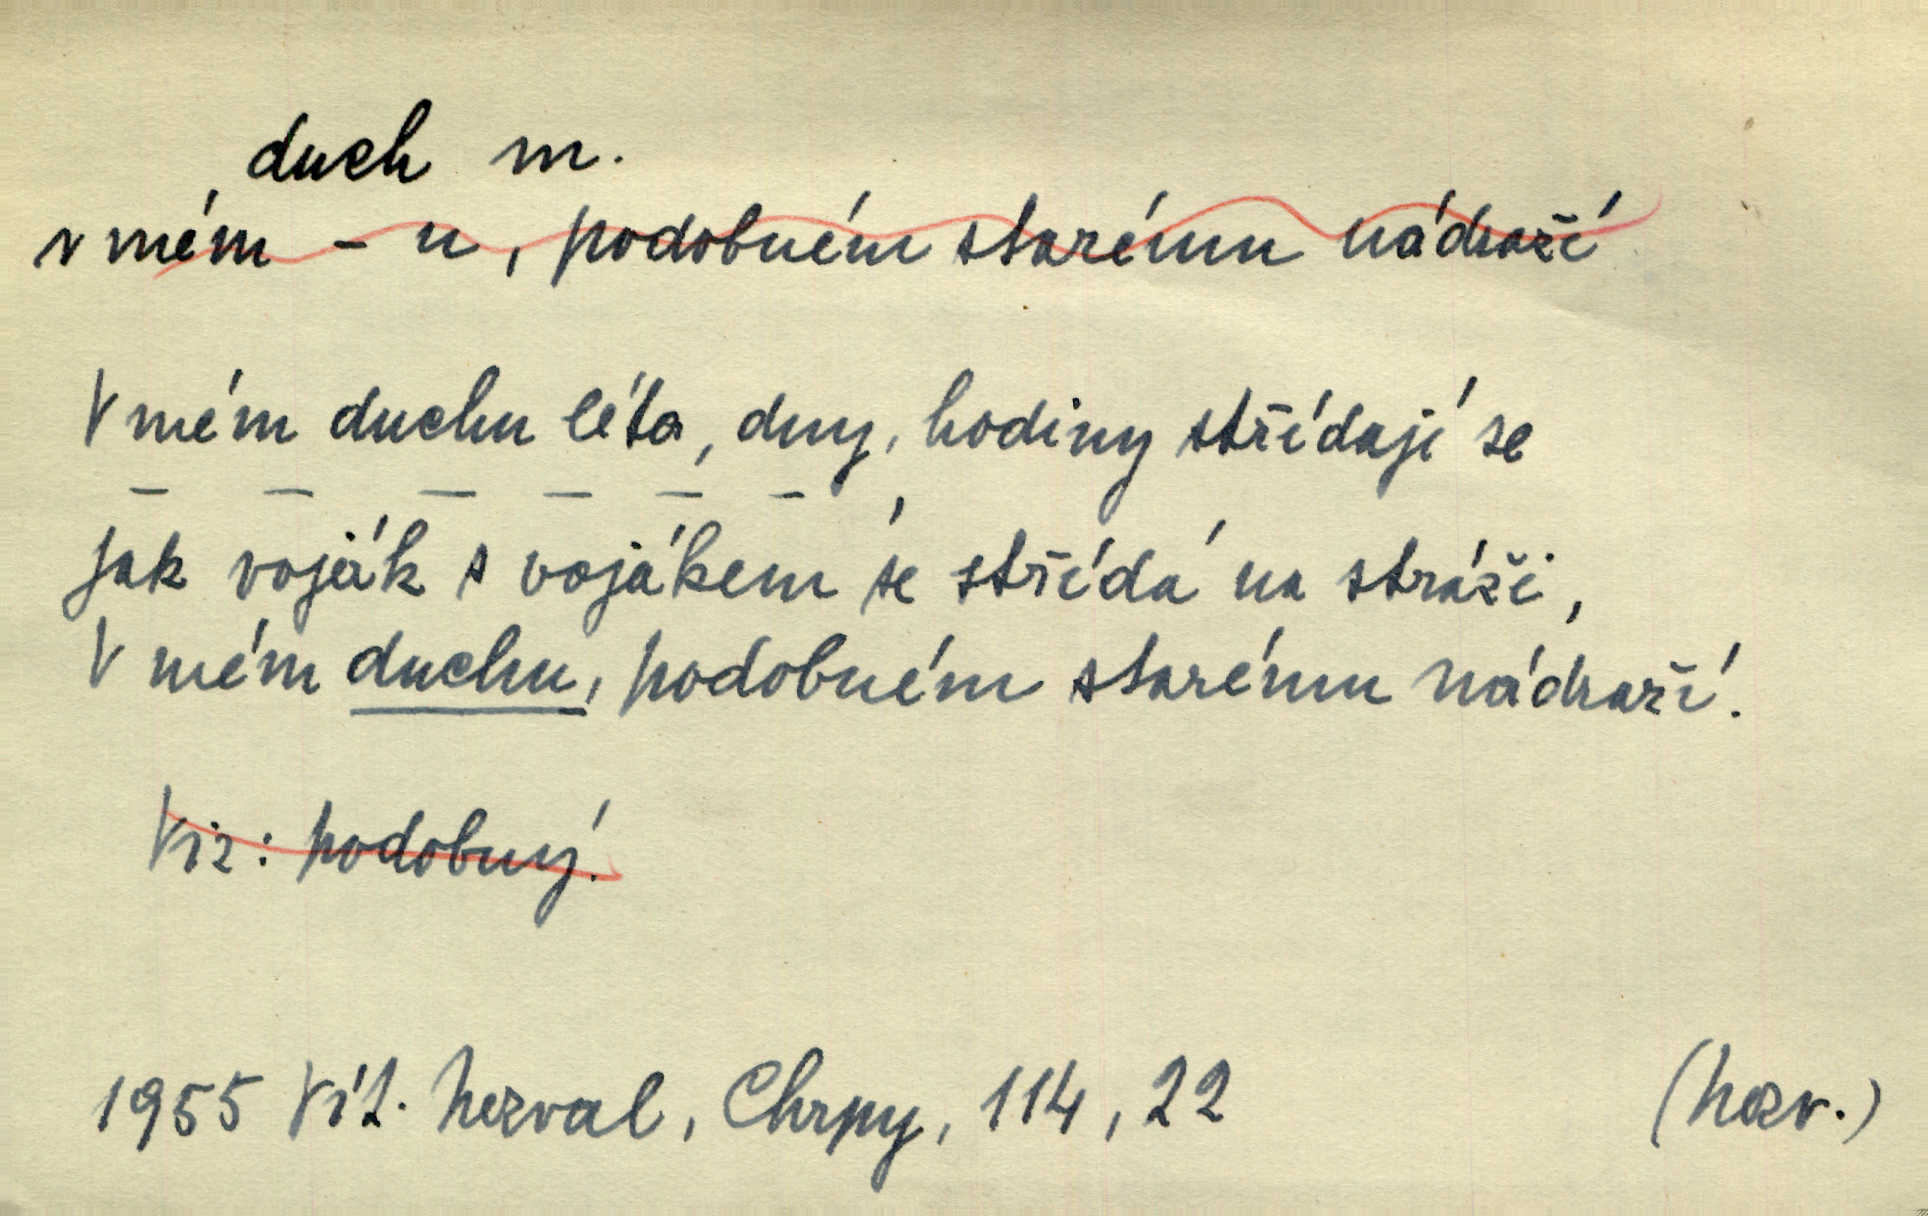 duch m.
v mém - u, podobném starému nádraží
V mém duchu léta, dny, hodiny střídají se
— — — — — —
jak voják s vojákem se střídá na stráži,
V mém duchu, podobném starému nádraží.
Viz: podobný.
1955 Vít. Nezval, Chrpy, 114, 22 (Nezv.)